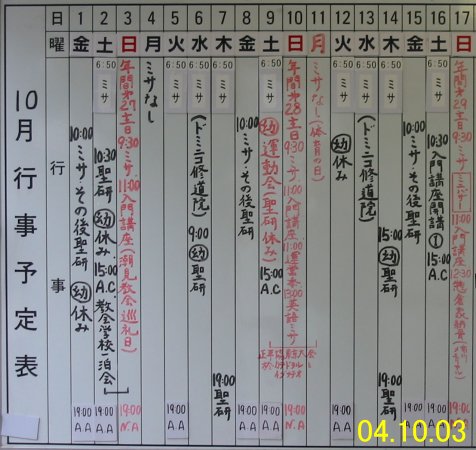 10月行事予定表
日 曜 行事
1 金 10:00 ミサ・その後聖研 ㊙幼 休み 19:00 A.A
2 土 6:50 ミサ 10:30 聖研 幼 休み 15:00 A.C 教会学校一泊会 19:00 A.A
3 日 年間第27主日 9:30 ミサ 11:00 入門講座 (潮見教会巡礼日) 19:00 N.A
4 月 ミサなし
5 火 6:50 ミサ 19:00 A.A
6 水 6:50 ミサ (ドミニコ修道院) 9:00 幼 聖研 19:00 A.A
7 木 6:50 ミサ 19:00 聖研
8 金 10:00 ミサ・その後聖研 19:00 A.A
9 土 6:50 ミサ 幼 運動会 (聖研休み) 15:00 A.C 19:00 A.A
10 日 年間第28主日 9:30 ミサ 11:00 入門講座 11:00 運営本 13:00 英語ミサ 19:00 N.A
11 月 ミサなし (体育の日)
12 火 6:50 ミサ 幼 休み 19:00 A.A
13 水 6:50 ミサ (ドミニコ修道院) 19:00 A.A
14 木 6:50 ミサ 15:00 幼 聖研 19:00 聖研
15 金 10:00 ミサ・その後聖研 19:00 A.A
16 土 6:50 ミサ 10:30 入門講座開講① 15:00 A.C 19:00 A.A
17 日 年間第29主日 9:30 ミサ 11:00 入門講座 12:30 19:00 N.A
04.10.03